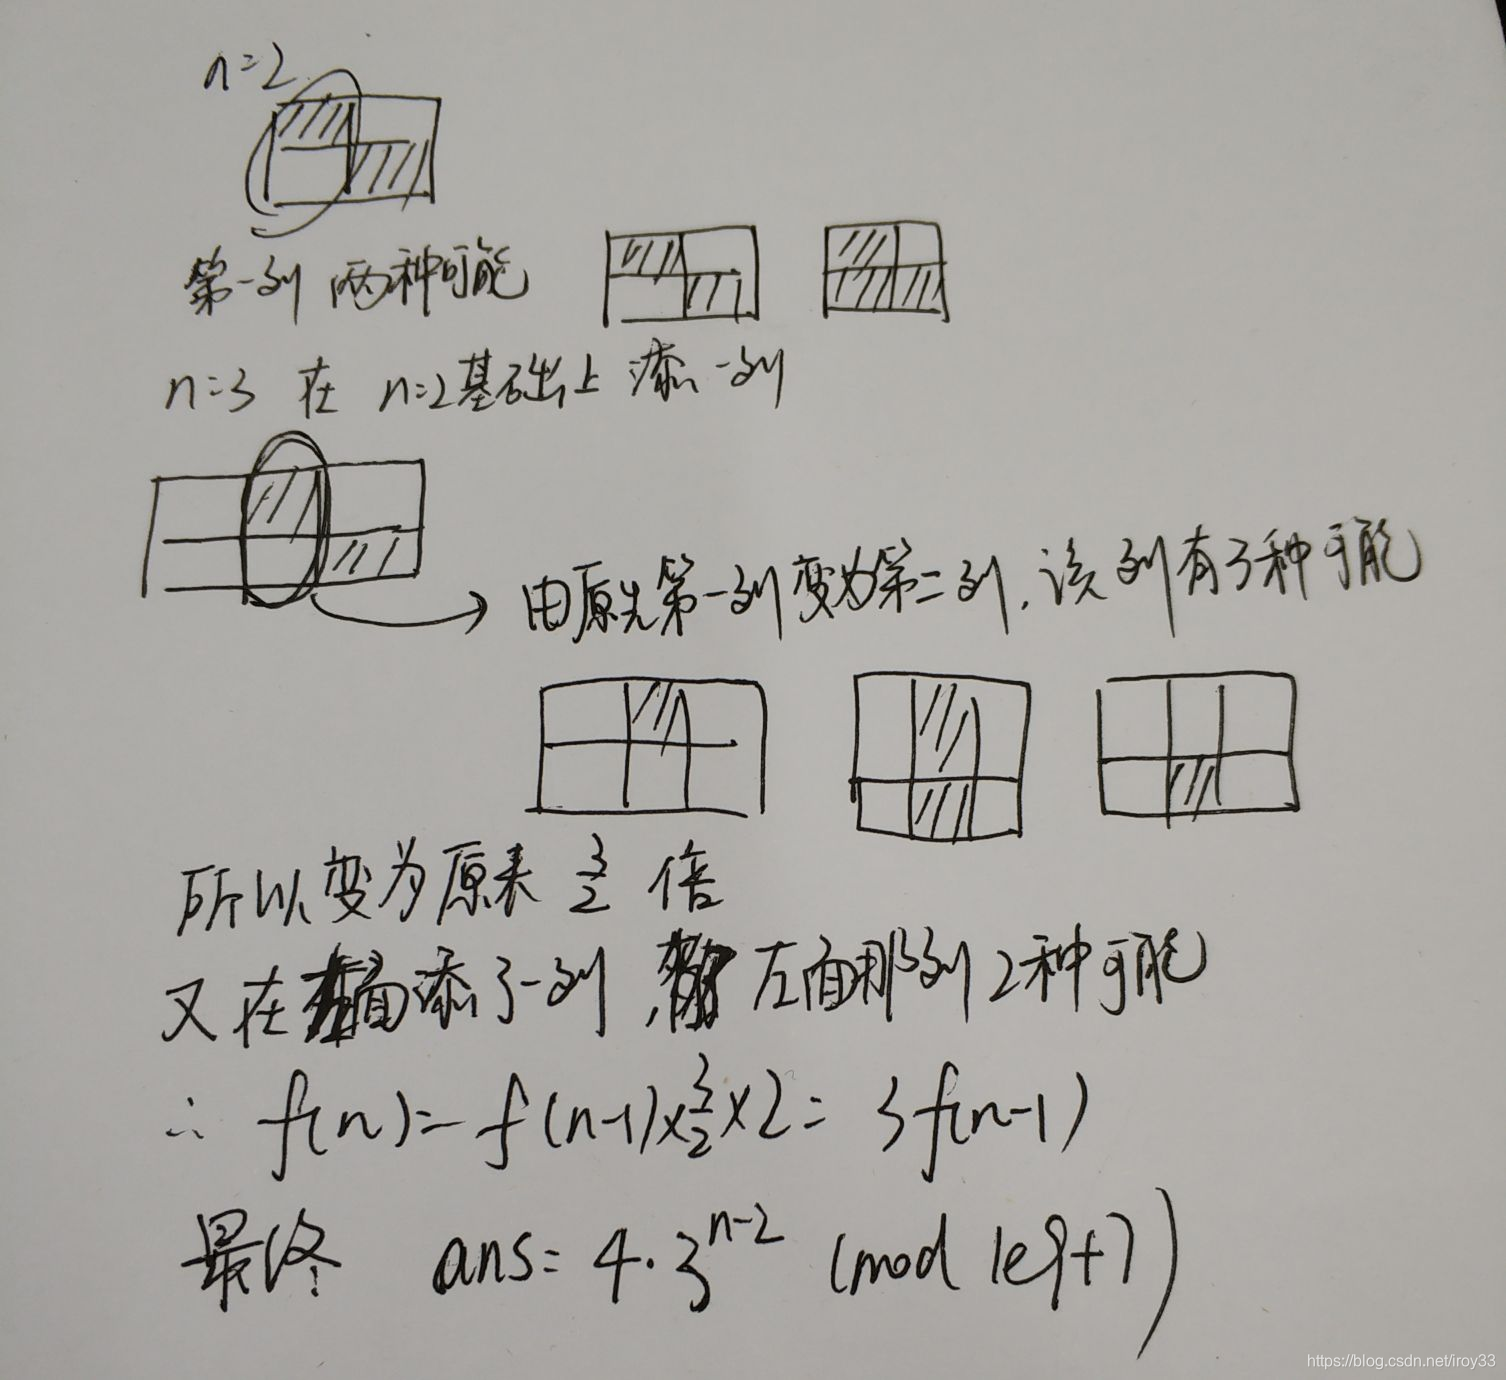 n=2
第一列 两种可能
n=3 在 n=2基础上 添一列
由原先第一列变为第二列，该列有3种可能
所以变为原来 3/2 倍
又在 面添了一列， 左面那列2种可能
∴ f(n)=f(n-1)×3/2×2=3f(n-1)
最终 ans=4·3^{n-2} (mod 1e9+7)
https://blog.csdn.net/iroy33